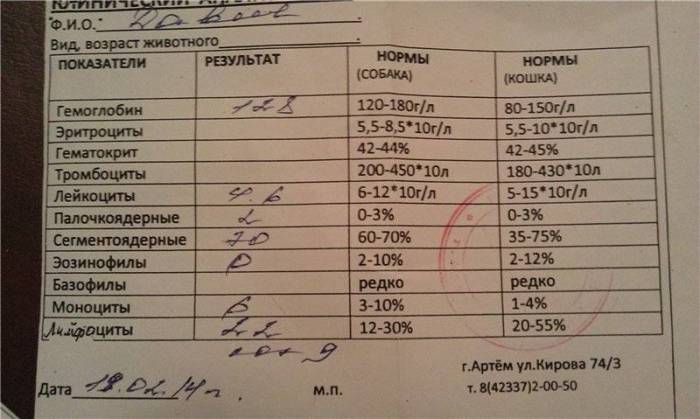 КЛИНИЧЕСКИЙ
Ф.И.О.
Вид, возраст животного
ПОКАЗАТЕЛИ РЕЗУЛЬТАТ НОРМЫ (СОБАКА) НОРМЫ (КОШКА)
Гемоглобин 128 120-180г/л 80-150г/л
Эритроциты 5,5-8,5*10г/л 5,5-10*10г/л
Гематокрит 42-44% 42-45%
Тромбоциты 200-450*10л 180-430*10л
Лейкоциты 4.6 6-12*10г/л 5-15*10г/л
Палочкоядерные 2 0-3% 0-3%
Сегментоядерные 70 60-70% 35-75%
Эозинофилы 0 2-10% 2-12%
Базофилы редко редко
Моноциты 6 3-10% 1-4%
Лимфоциты 22 12-30% 20-55%
г.Артём ул.Кирова 74/3
Дата 18.02.14г. м.п. т. 8(42337)2-00-50